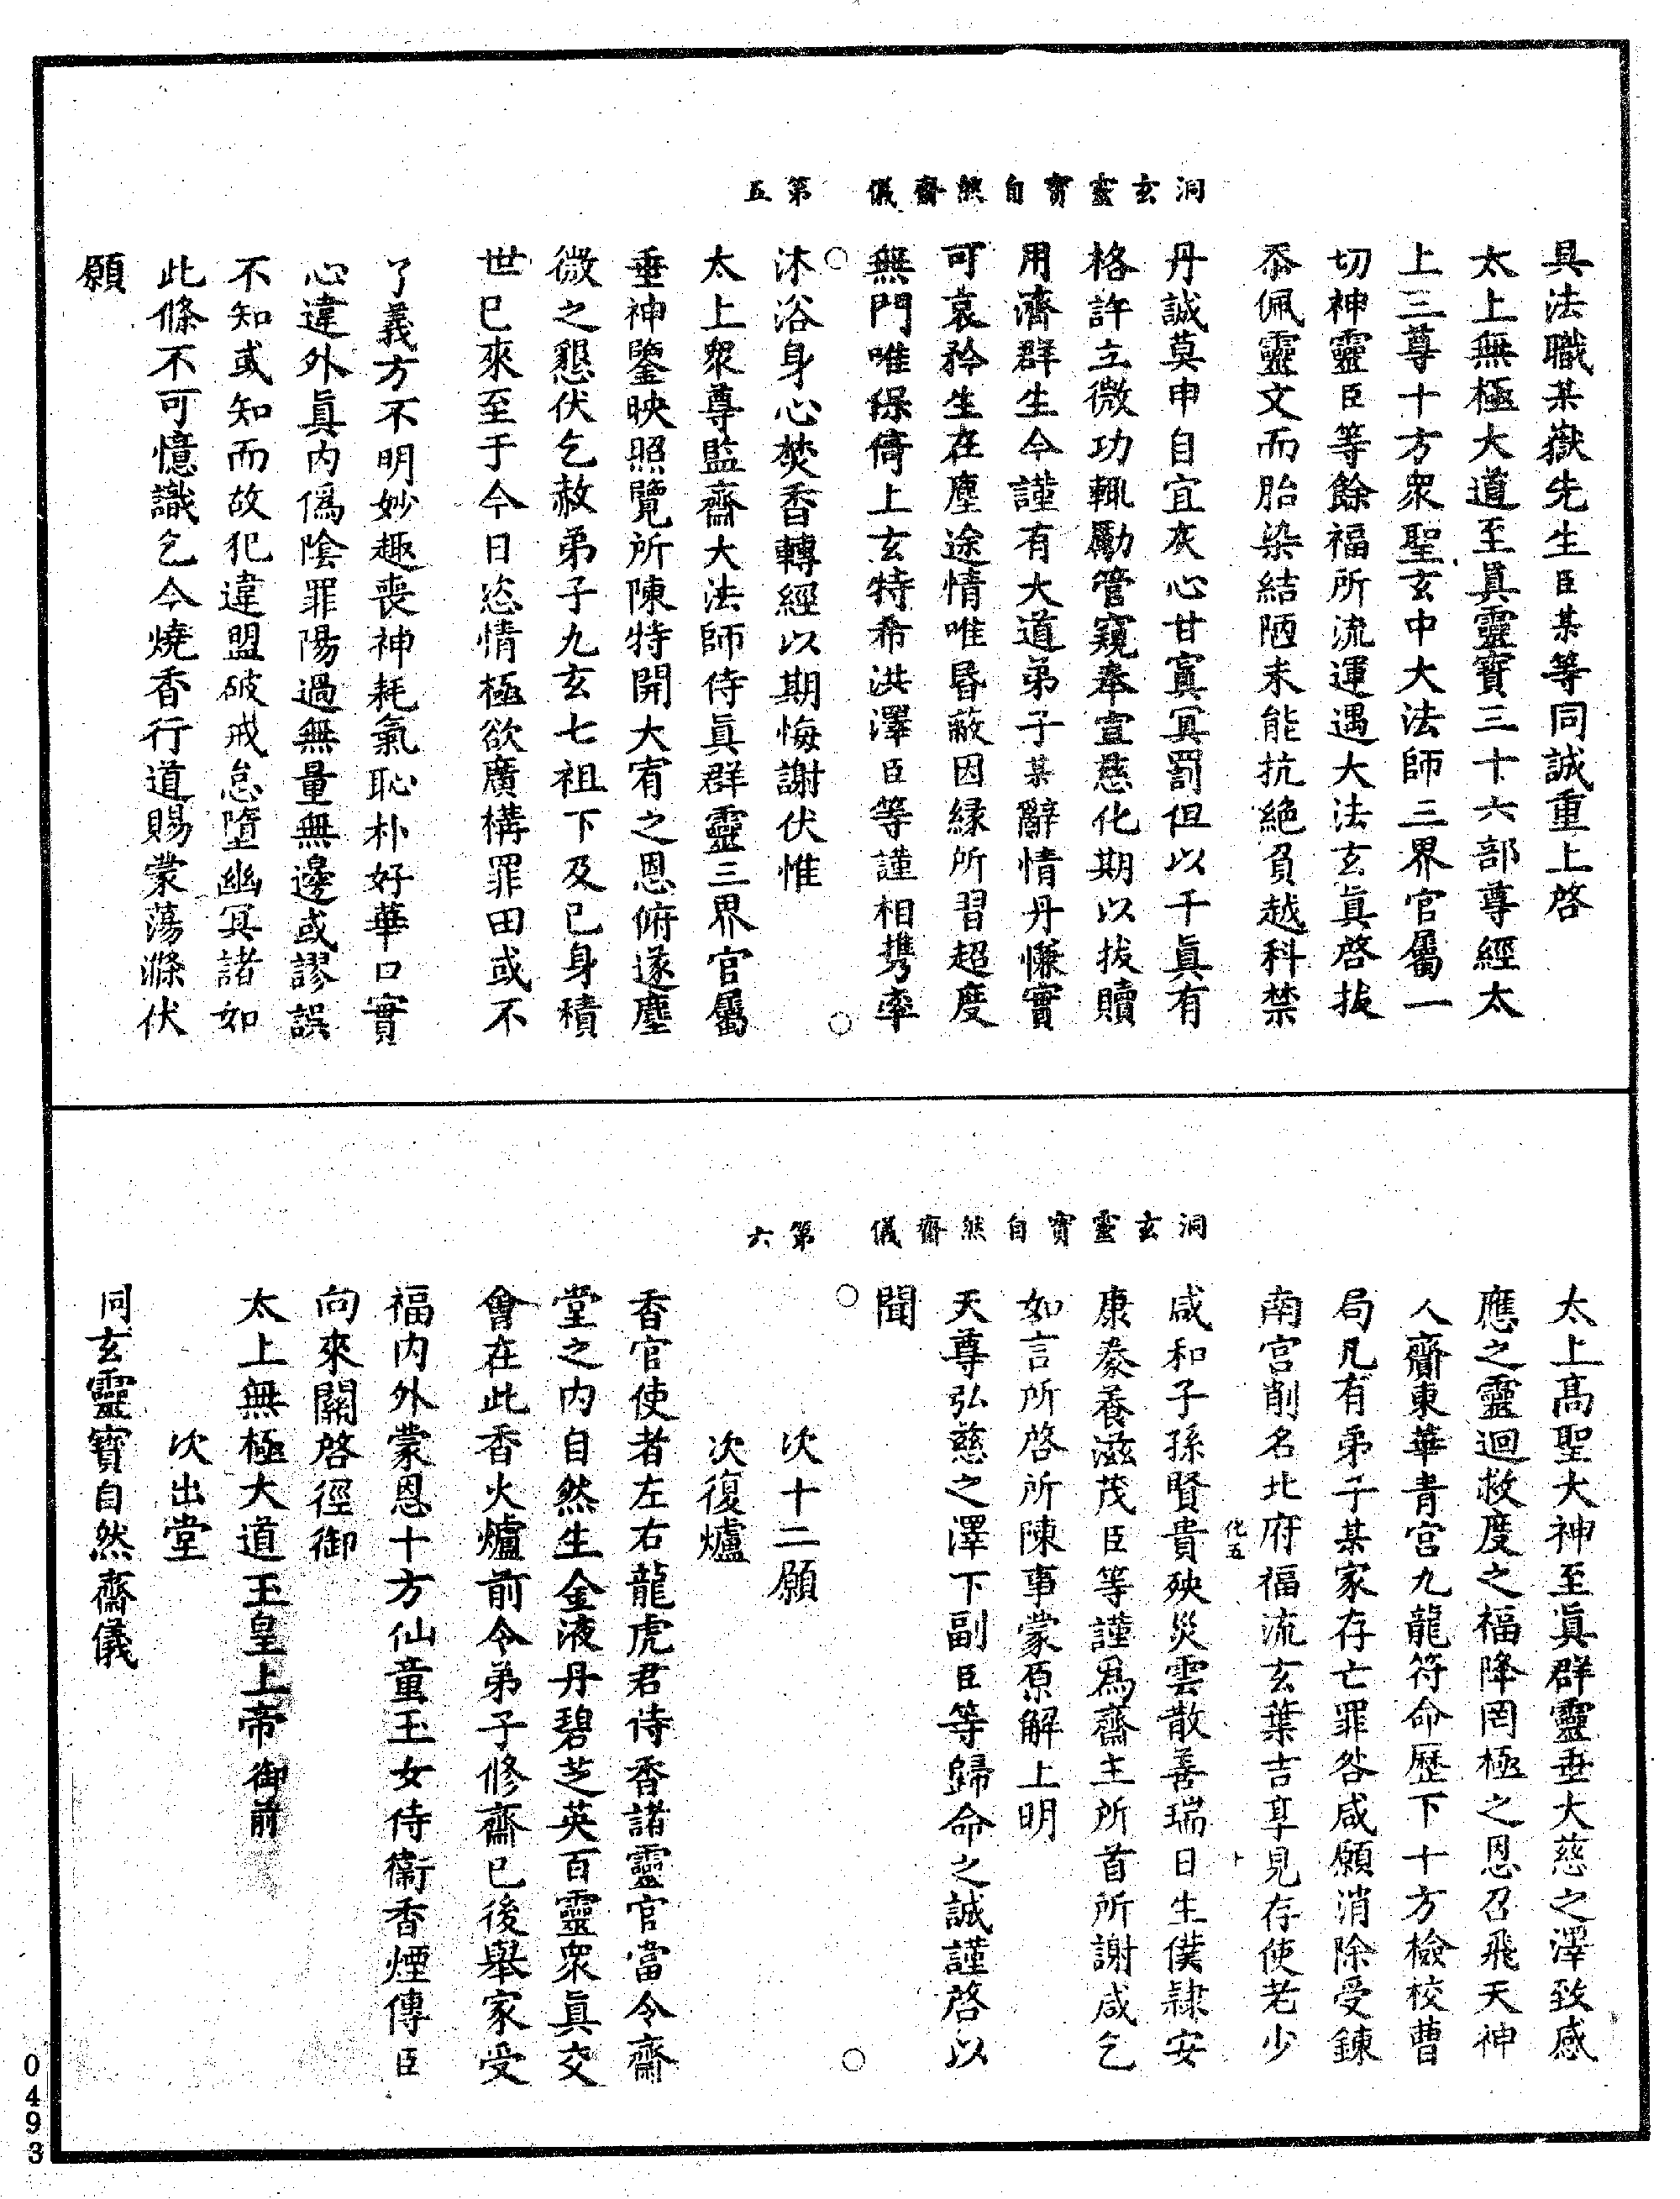 洞玄靈寶自然齋儀　第五
具法職某嶽先生臣某等同誠重上啓
太上無極大道至眞靈寶三十六部尊經太
上三尊十方衆聖玄中大法師三界官屬一
切神靈臣等餘福所流運遇大法玄眞啓拔
忝佩靈文而胎染結陋未能抗絶負越科禁
丹誠莫申自宜灰心甘寘冥罰但以千眞有
格許立微功輒勵管窺奉宣慈化期以拔贖
用濟群生今謹有大道弟子某辭情丹慊實
可哀矜生在塵途情唯昏蔽因緣所習超度
無門唯保倚上玄特希洪澤臣等謹相携率
沐浴身心焚香轉經以期悔謝伏惟
太上衆尊監齋大法師侍眞群靈三界官屬
垂神鑒映照覽所陳特開大宥之恩俯遂塵
微之懇伏乞赦弟子九玄七祖下及已身積
世已來至于今日恣情極欲廣構罪田或不
了義方不明妙趣喪神耗氣恥朴好華口實
心違外眞内僞陰罪陽過無量無邊或謬誤
不知或知而故犯違盟破戒怠墮幽冥諸如
此條不可憶識乞今燒香行道賜蒙蕩滌伏
願
洞玄靈寶自然齋儀　第六
太上高聖大神至眞群靈垂大慈之澤致感
應之靈迴救度之福降罔極之恩召飛天神
人齎東華青宮九龍符命歷下十方檢校曹
局凡有弟子某家存亡罪咎咸願消除受鍊
南宮削名北府福流玄葉吉享見存使老少
化五　十
咸和子孫賢貴殃災雲散善瑞日生僕隷安
康豢養滋茂臣等謹爲齋主所首所謝咸乞
如言所啓所陳事蒙原解上明
天尊弘慈之澤下副臣等歸命之誠謹啓以
聞
次十二願
次復爐
香官使者左右龍虎君侍香諸靈官當令齋
堂之内自然生金液丹碧芝英百靈衆眞交
會在此香火爐前令弟子修齋已後舉家受
福内外蒙恩十方仙童玉女侍衛香煙傳臣
向來關啓徑御
太上無極大道玉皇上帝御前
次出堂
同玄靈寶自然齋儀
0493